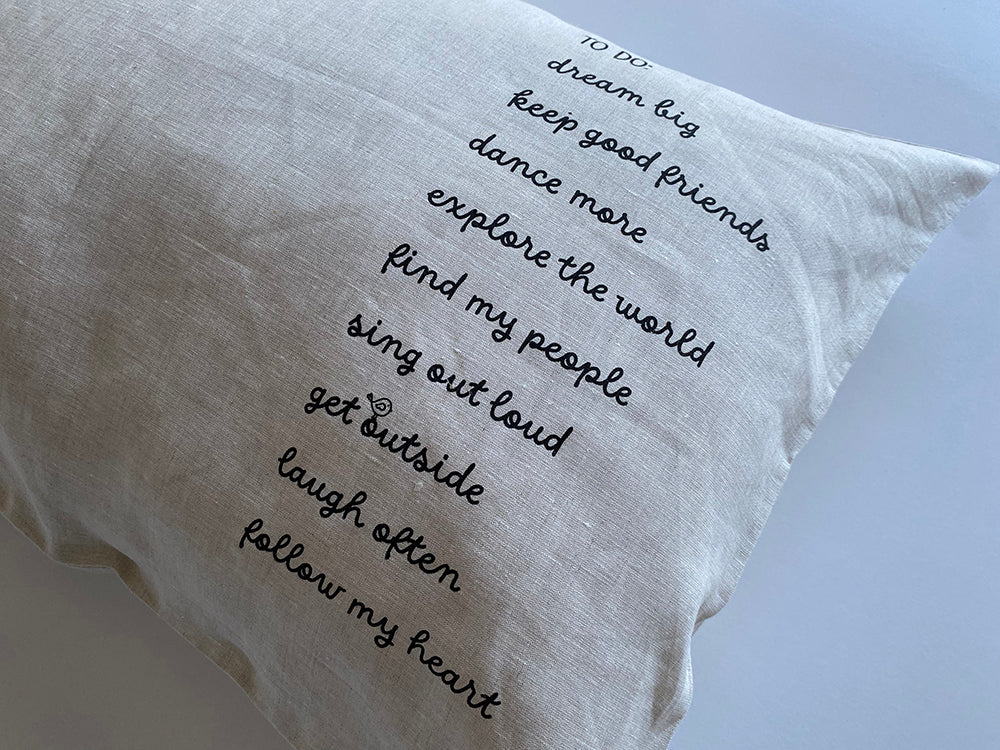 TO DO:
dream big
keep good friends
dance more
explore the world
find my people
sing out loud
get outside
laugh often
follow my heart